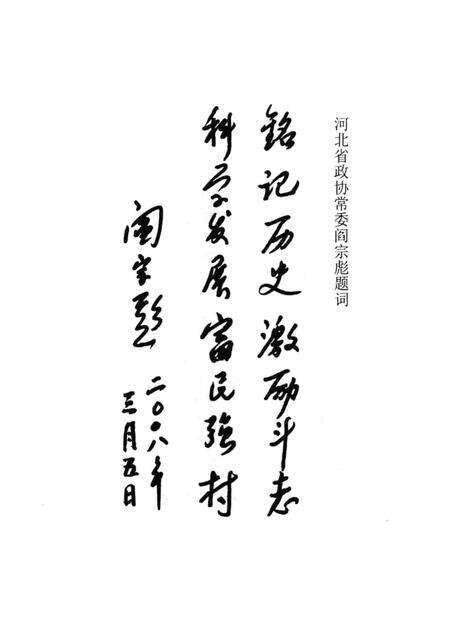 河北省政协常委阎宗彪题词
铭记历史激励斗志
科学发展富民强村
阎宗彪
二〇〇八年
三月五日